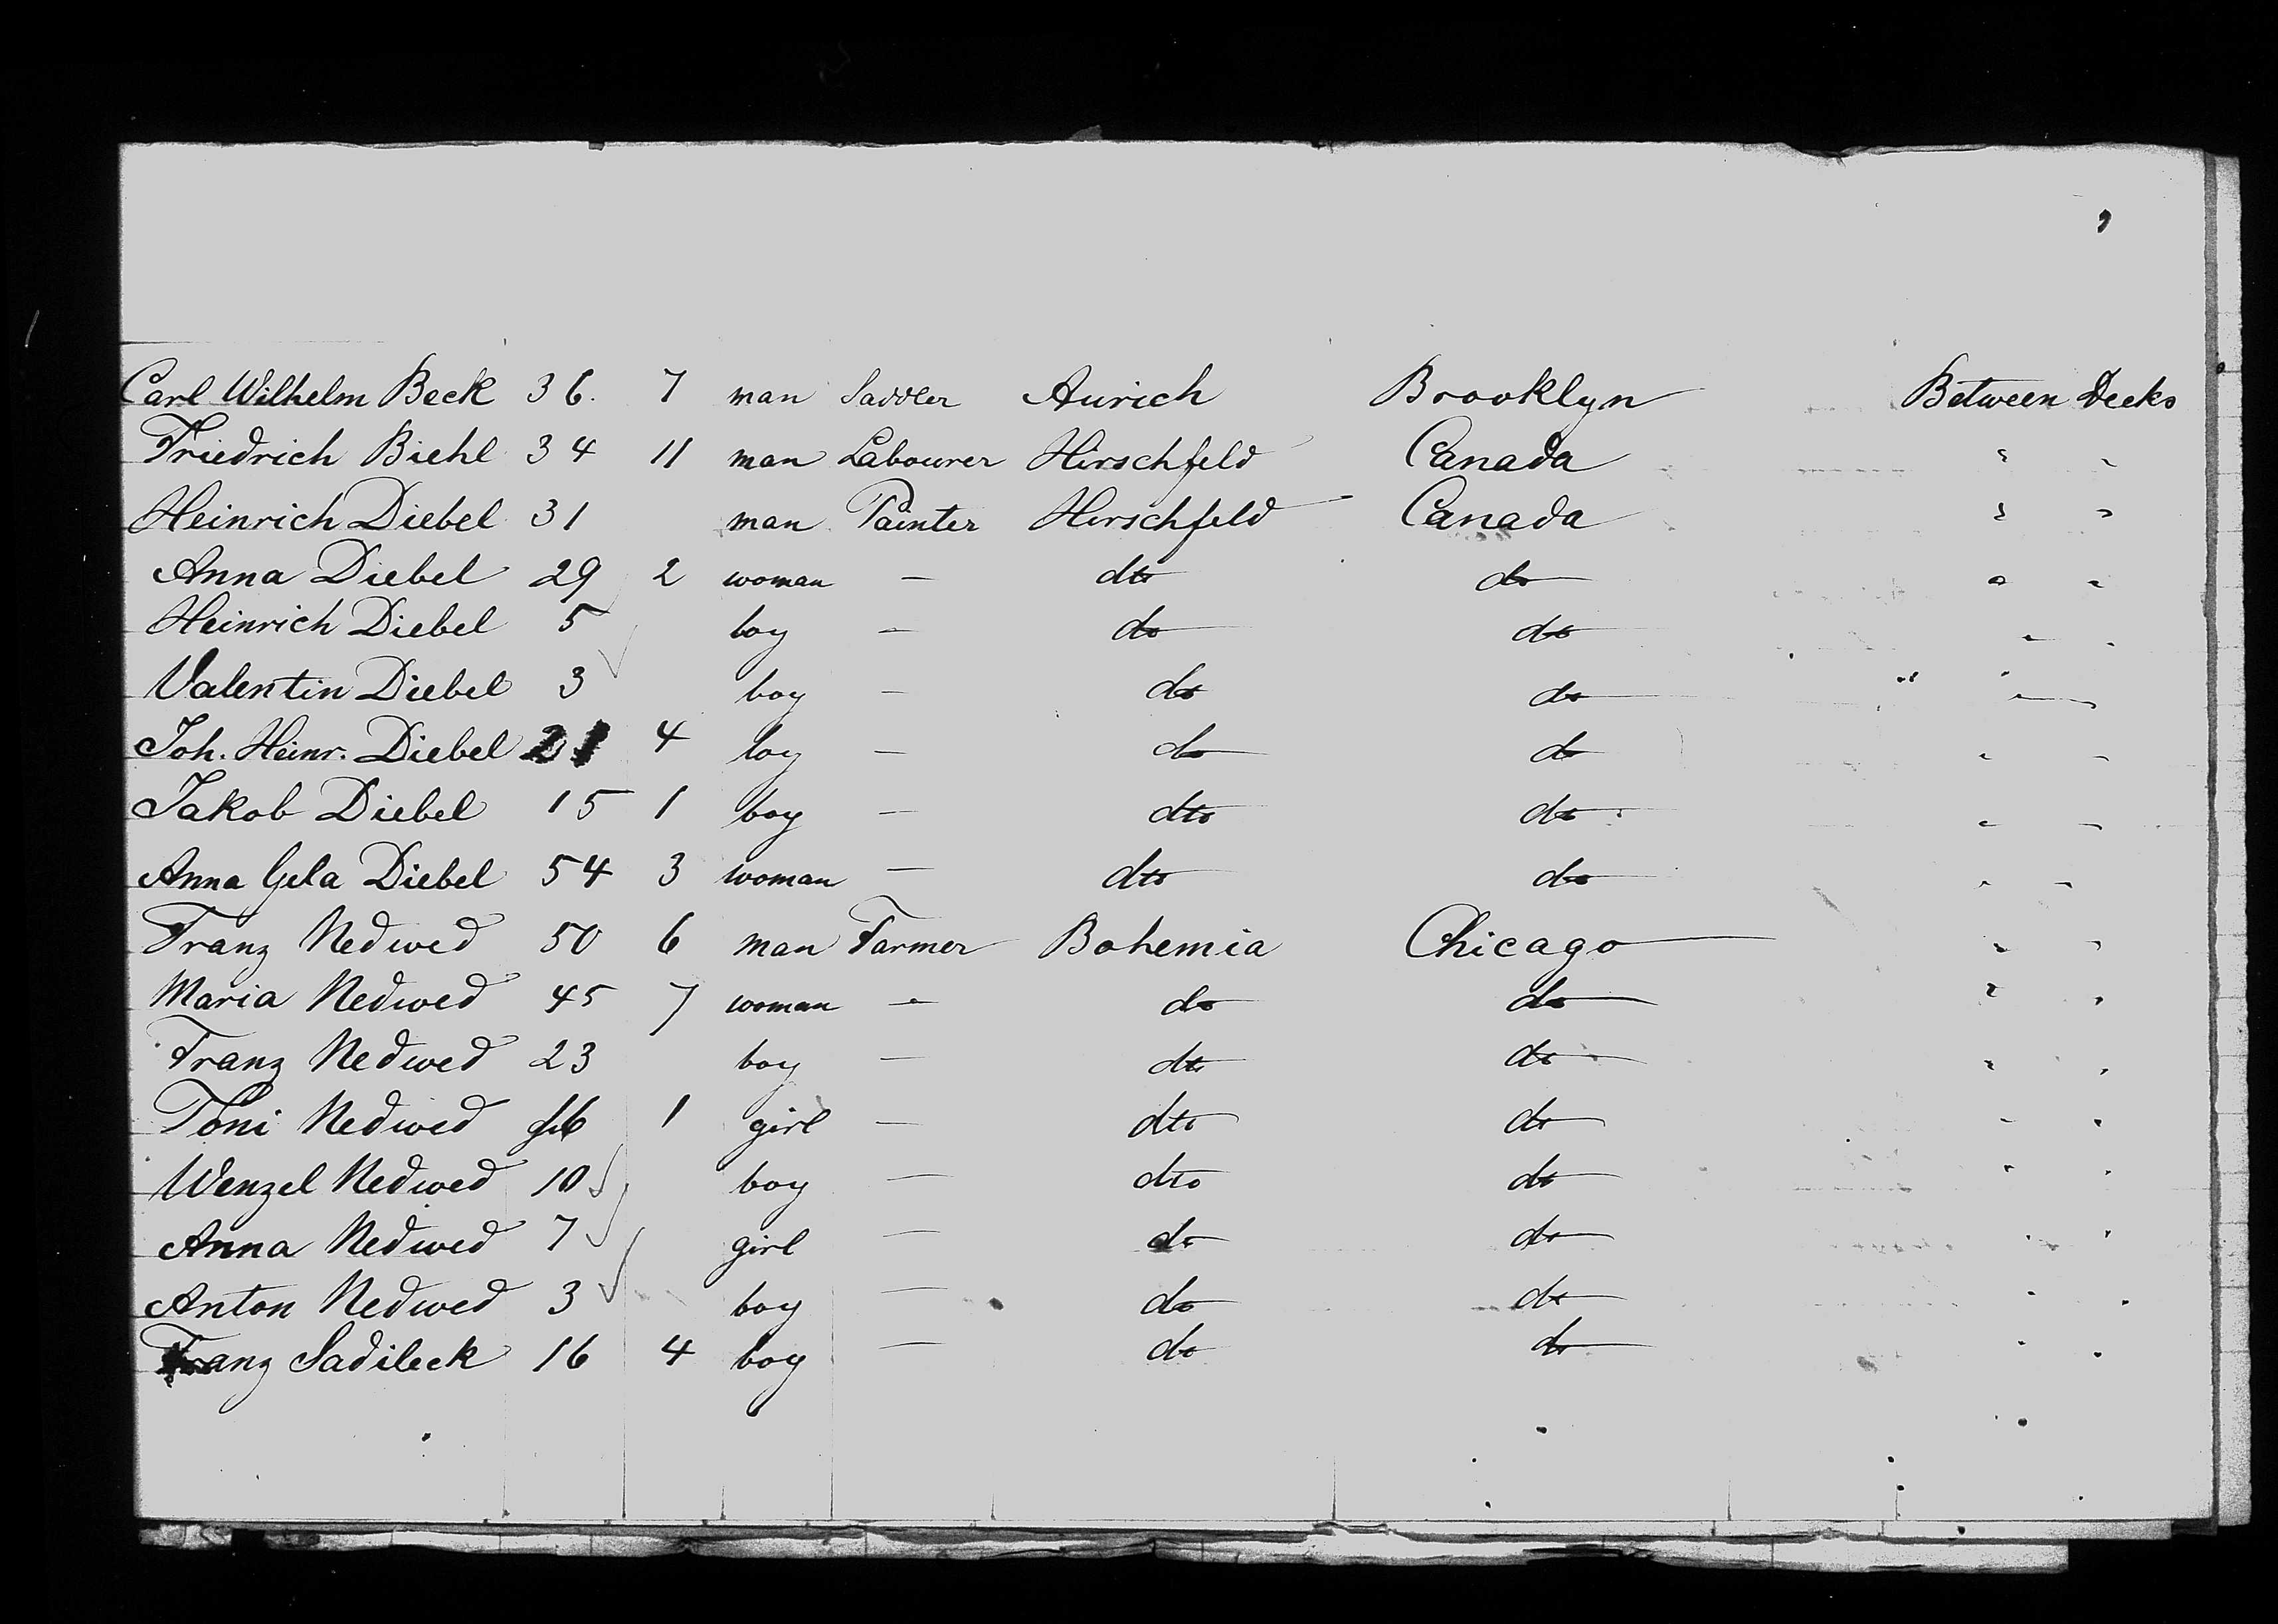 Carl Wilhelm Beck 36. 7 man Saddler Aurich Brooklyn Between Decks
Friedrich Biehl 34 11 man Labourer Hirschfeld Canada " "
Heinrich Diebel 31 man Painter Hirschfeld Canada " "
Anna Diebel 29 2 woman — dto do " "
Heinrich Diebel 5 boy — do do " "
Valentin Diebel 3 boy — do do " "
Joh. Heinr. Diebel 21 4 boy — do do " "
Jakob Diebel 15 1 boy — dto do " "
Anna Gela Diebel 54 3 woman — dto do " "
Franz Nedwed 50 6 man Farmer Bohemia Chicago " "
Maria Nedwed 45 7 woman — do do " "
Franz Nedwed 23 boy — dto do " "
Toni Nedwed 16 1 girl — dto do " "
Wenzel Nedwed 10 boy — dto do " "
Anna Nedwed 7 girl — do do " "
Anton Nedwed 3 boy — do do " "
Franz Sadileck 16 4 boy — do do " "